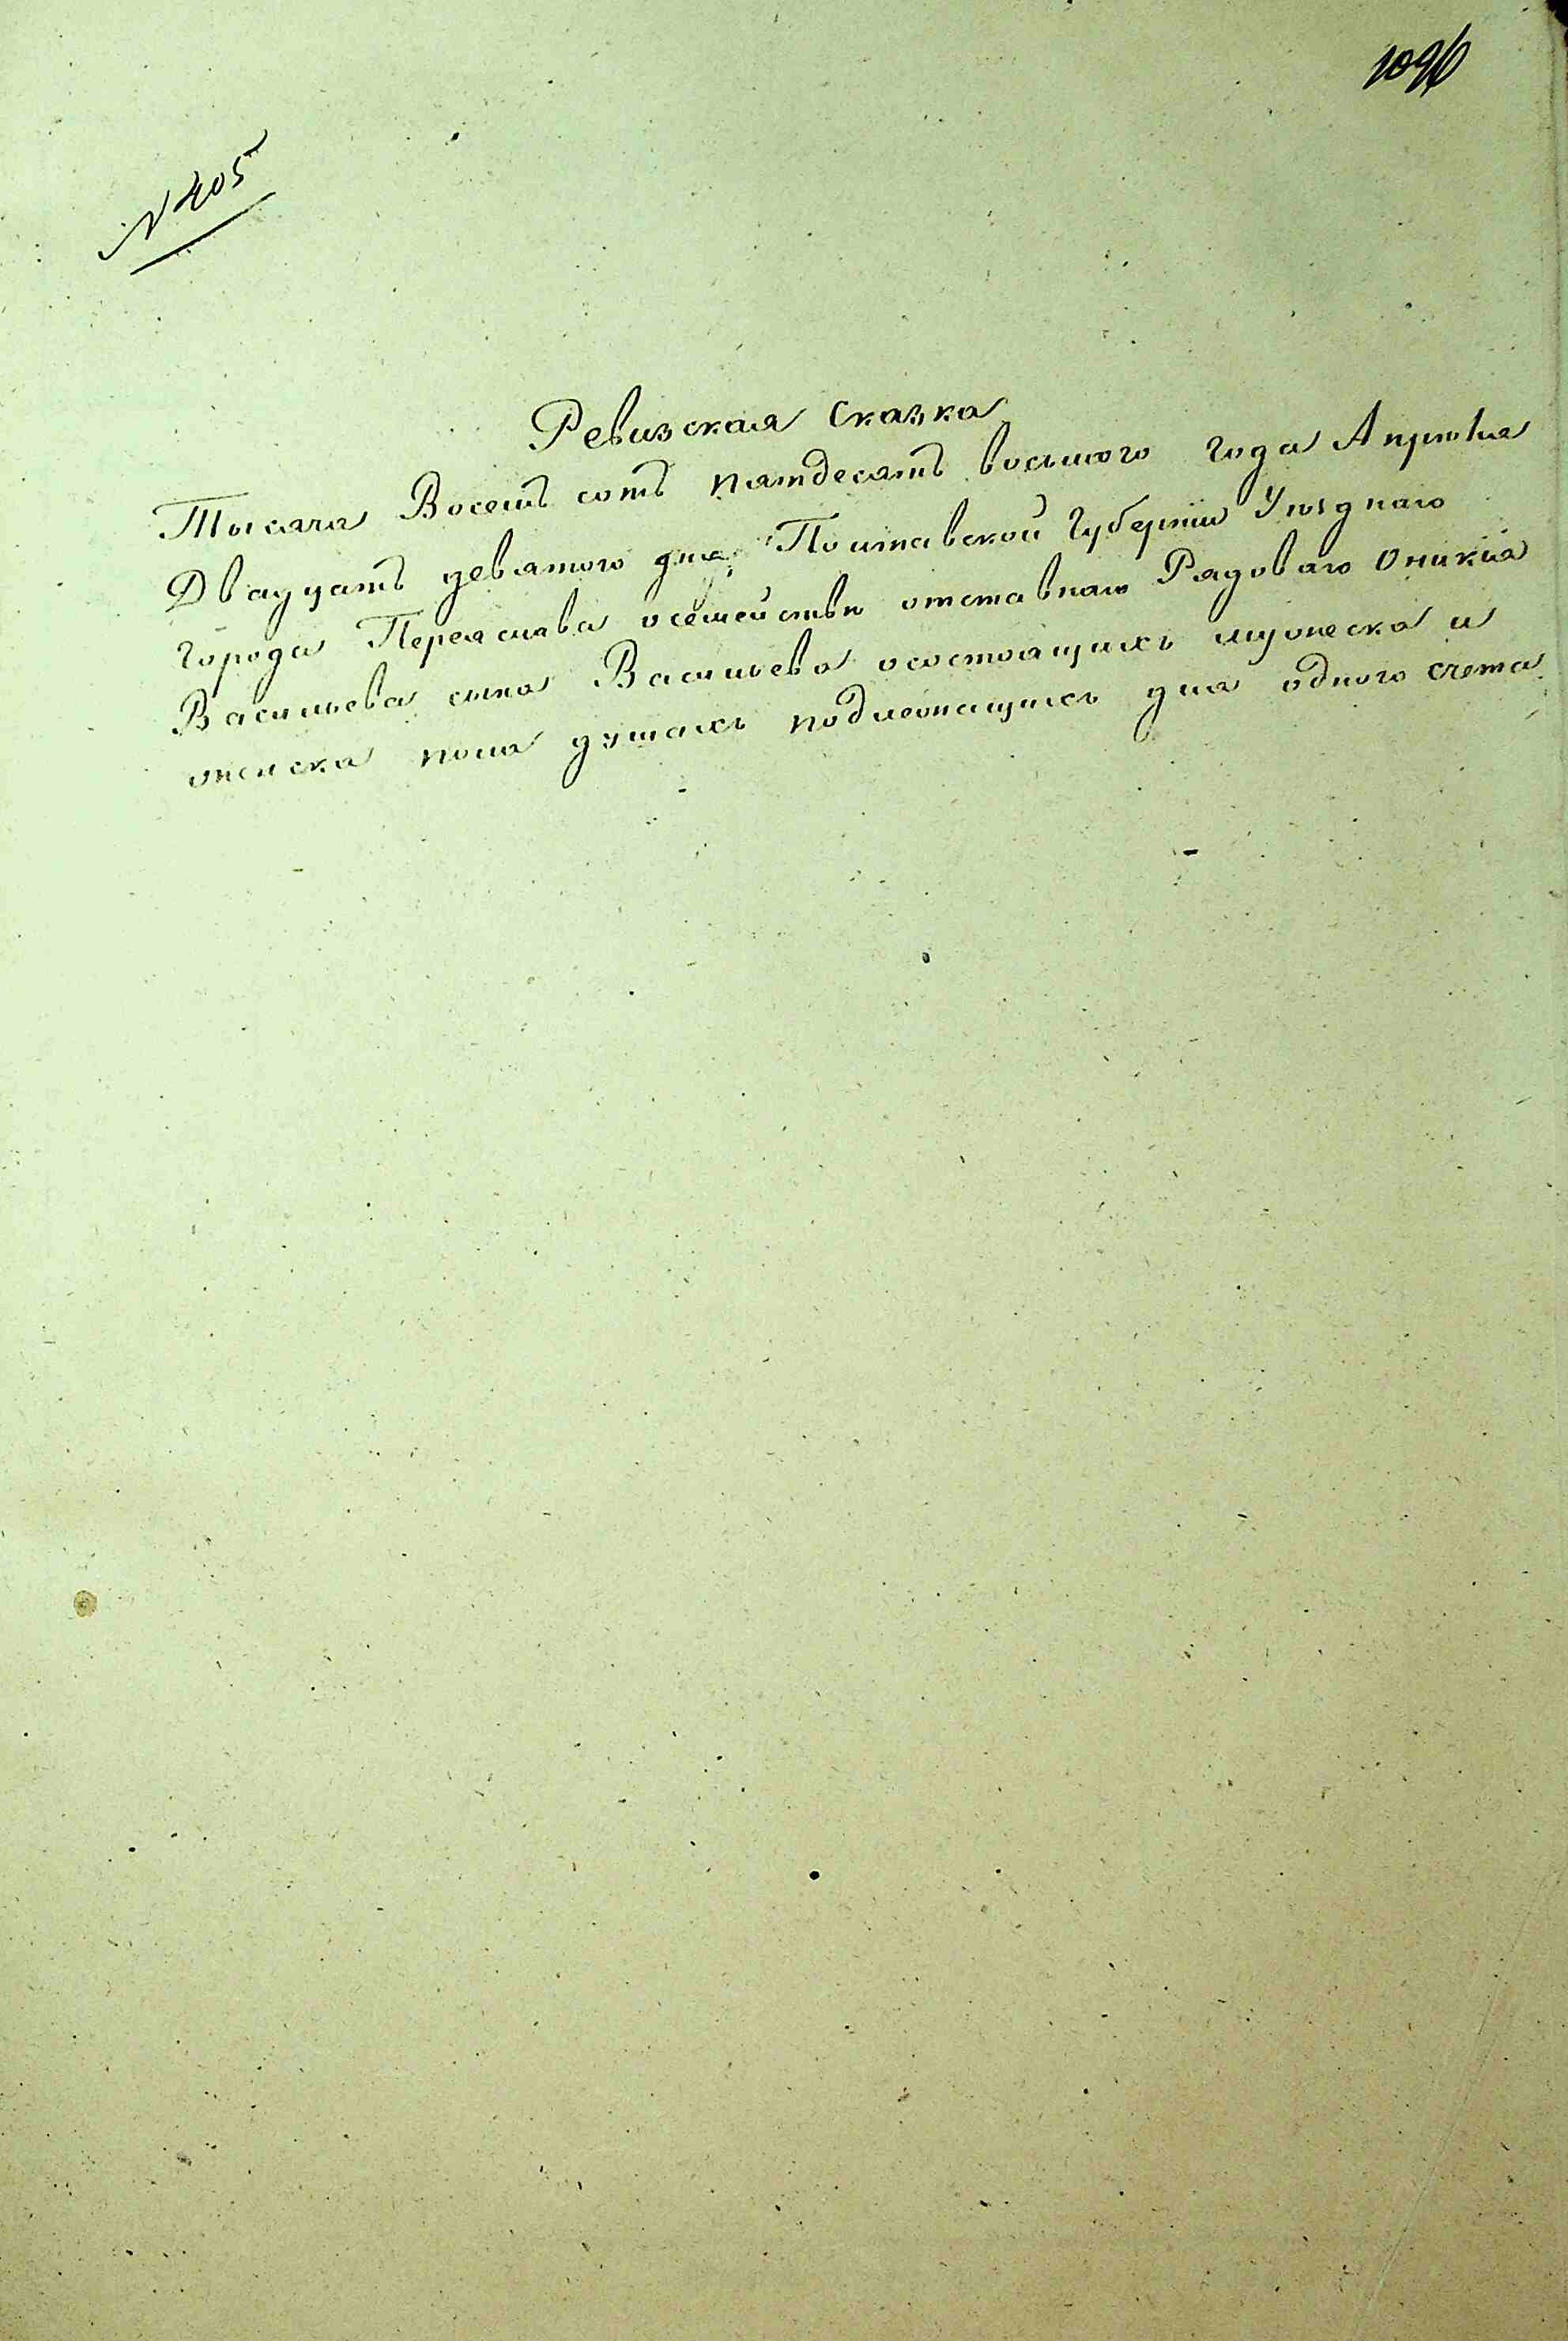 1096
№ 405
Ревизская Сказка
Тысяча Восемъ сотъ пятдесятъ восьмого года Апреля
Двадцатъ девятого дня Полтавской Губернии Уезднаго
города Переяслава осемействе отставнаго Рядоваго Оникия
Васильева сына Васильева осостоящихъ мужеска и
женска пола душахъ подлежащихъ для одного счета